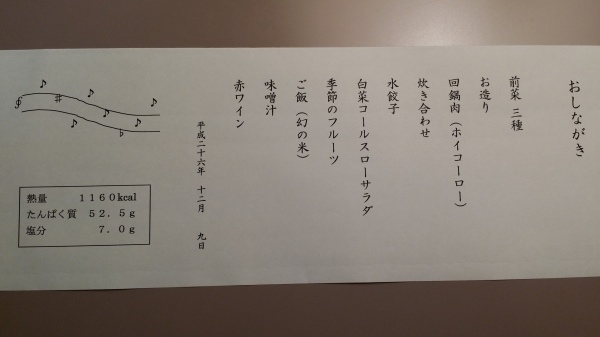 おしながき
前菜 三種
お造り
回鍋肉（ホイコーロー）
炊き合わせ
水餃子
白菜コールスローサラダ
季節のフルーツ
ご飯（幻の米）
味噌汁
赤ワイン
平成二十六年 十二月 九日
熱量 １１６０kcal
たんぱく質 ５２．５ｇ
塩分 ７．０ｇ